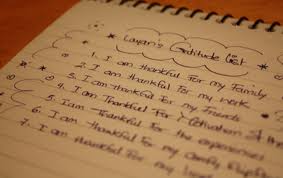 Layan's Gratitude List
1. I am thankful for my family
2. I am thankful for my work
3. I am thankful for my friends
4. I am Thankful For Motivation &
5. I am thankful for the experiences
6. I am thankful for my
7. I am thankful for my